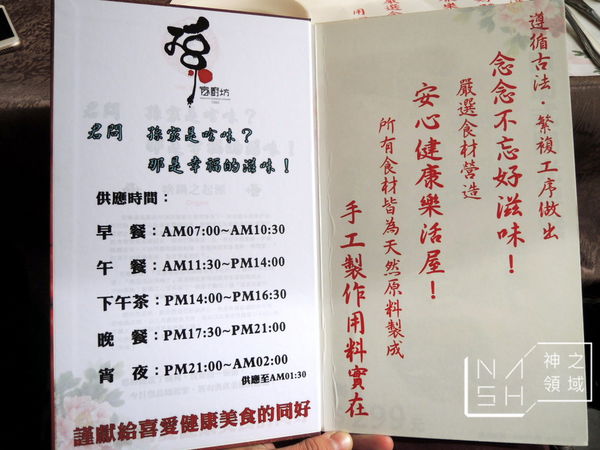 孫
食尚坊
君問 孫家是啥味？
那是幸福的滋味！
供應時間：
早 餐：AM07:00~AM10:30
午 餐：AM11:30~PM14:00
下午茶：PM14:00~PM16:30
晚 餐：PM17:30~PM21:00
宵 夜：PM21:00~AM02:00
供應至AM01:30
謹獻給喜愛健康美食的同好
遵循古法．繁複工序做出
念念不忘好滋味！
嚴選食材營造
安心健康樂活屋！
所有食材皆為天然原料製成
手工製作用料實在
NASH
神之領域